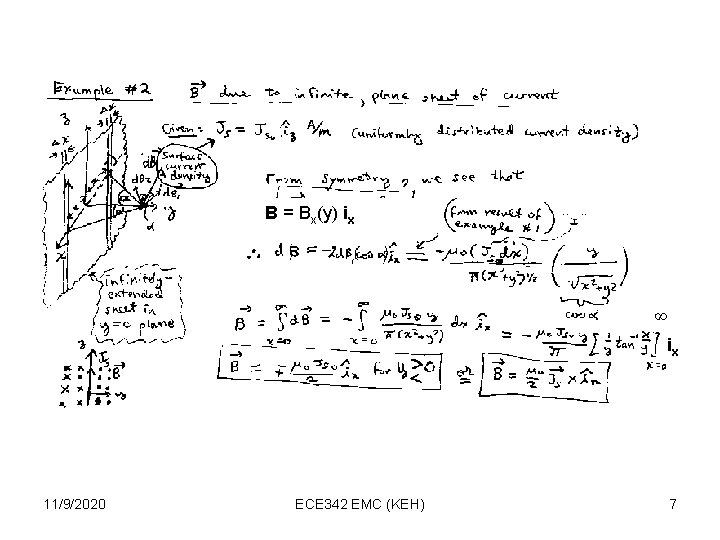 Example #2    B→ due to infinite, plane sheet of current
Given: J̄s = Jso îz A/m (uniformly distributed current density)
Surface current density
From symmetry, we see that
B = Bx(y) ix
(from result of example #1)
∴ dB̄ = -2dB₁(cos α) îx = -μ0 (Jso dx) / π(x²+y²)^1/2 ( y / √(x²+y²) )
cos α
infinitely-extended sheet in y=0 plane
B̄ = ∫_{x=0}^{∞} dB̄ = -∫_{x=0}^{∞} μ0 Jso y / π(x²+y²) dx îx = -μ0 Jso y / π [ 1/y tan⁻¹ x/y ]_{x=0}^{∞} ix
B̄ = ∓ μ0 Jso / 2 îx for y ≷ 0 or B̄ = μ0/2 J̄s × în
11/9/2020    ECE 342 EMC (KEH)    7